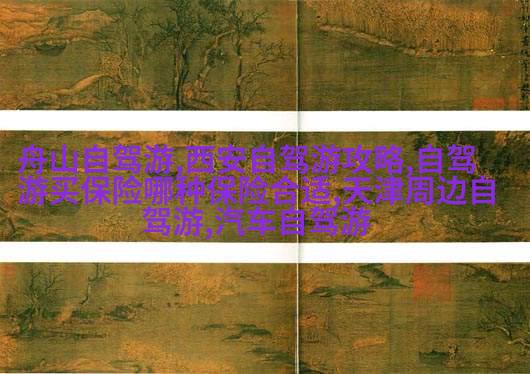 舟山自驾游,西安自驾游攻略,自驾
游买保险哪种保险合适,天津周边自
驾游,汽车自驾游